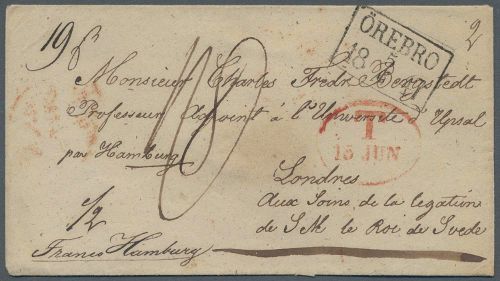 19
2
ÖREBRO
18
Monsieur Charles Fredr Bergstedt
Professeur Adjoint à l'Université d'Upsal
par Hamburg
1
15 JUN
Londres
1/2
Aux Soins de la legation
de S M le Roi de Svede
Franco Hamburg